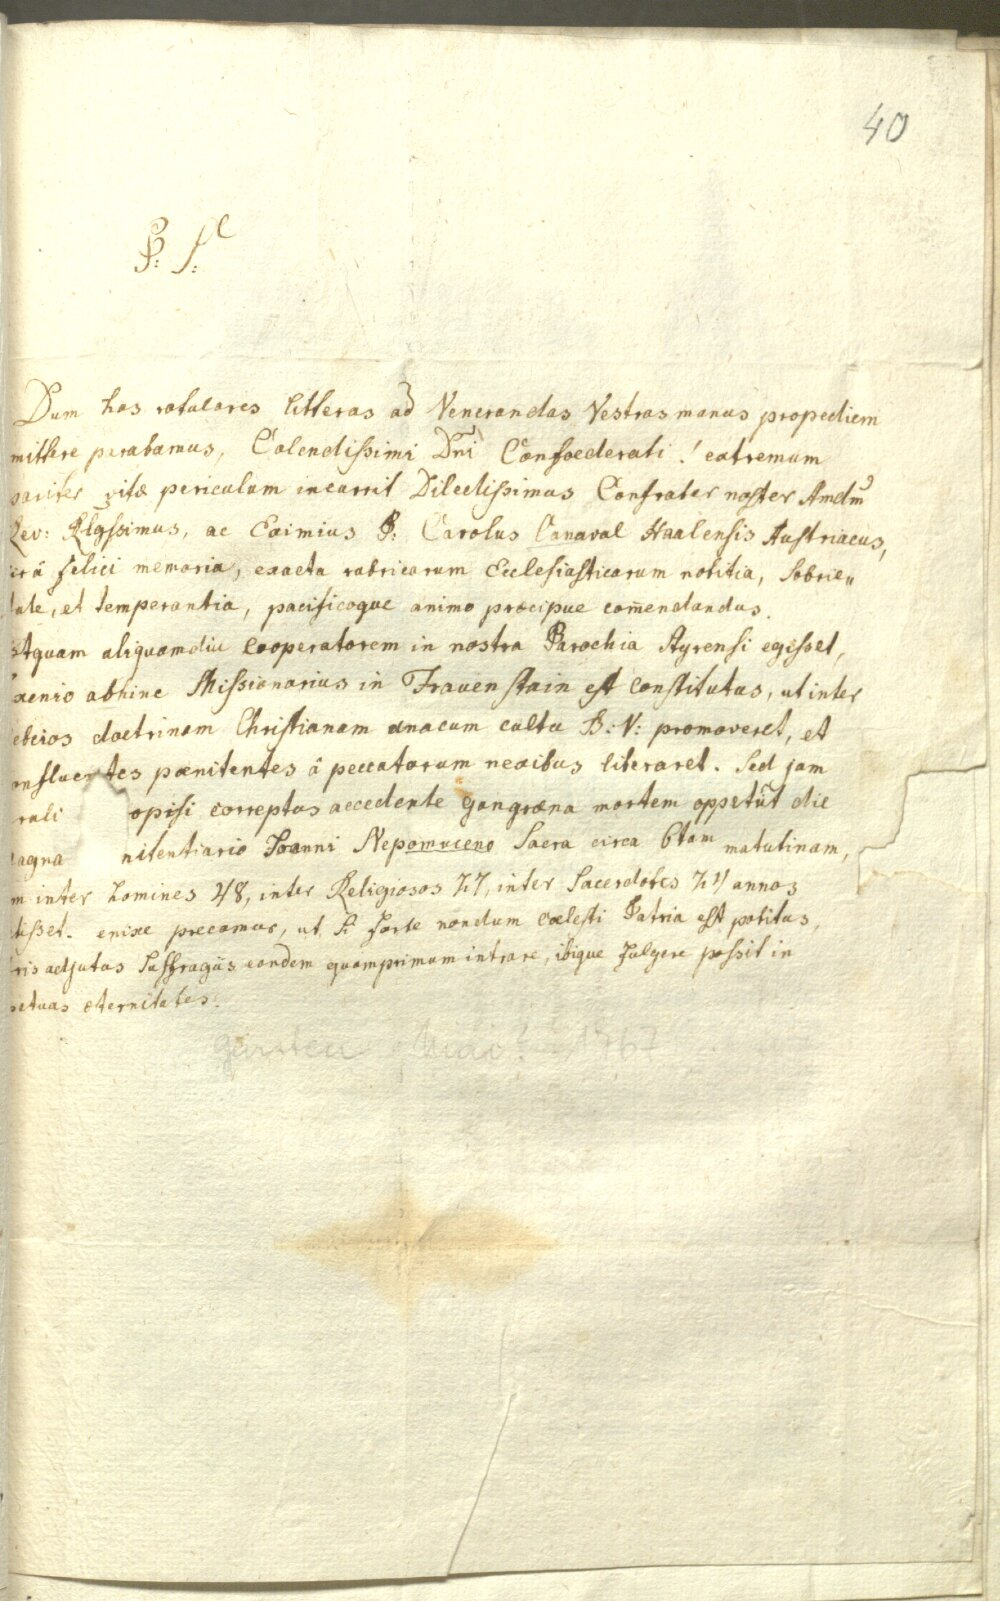 40
P: S:
Dum has rotulares litteras ad Venerandas Vestras manus propediem
mittere parabamus, Colendissimi Dni Confoederati! extremum
pariter vitæ periculum incurrit Dilectissimus Confrater noster Amdm
Rev: Rlgssimus, ac Eximius P: Carolus Canaval Haalensis Austriacus,
felici memoria, exacta rubricarum Ecclesiasticarum notitia, Sobrie„
tate, et temperantia, pacificoque animo præcipue com̄endandus.
tquam aliquamdiu Cooperatorem in nostra Parochia Styrensi egisset,
xenio abhinc Missionarius in Frauenstain est constitutus, ut inter
ebeios doctrinam Christianam unacum cultu B: V: promoveret, et
onfluentes pænitentes â peccatorum nexibus liberaret. Sed jam
rali opisi correptus accedente gangræna mortem oppetiit die
agna nitentiario Joanni Nepomuceno Sacra circa 6tam matutinam,
m inter homines 48, inter Religiosos 27, inter Sacerdotes 21 annos
isset. enixe precamur, ut Si forte nondum cælesti Patria est potitus,
ris adjutus Suffragiis eandem quamprimum intrare, ibique fulgere possit in
petuas æternitates.
Garsten Mai 1767